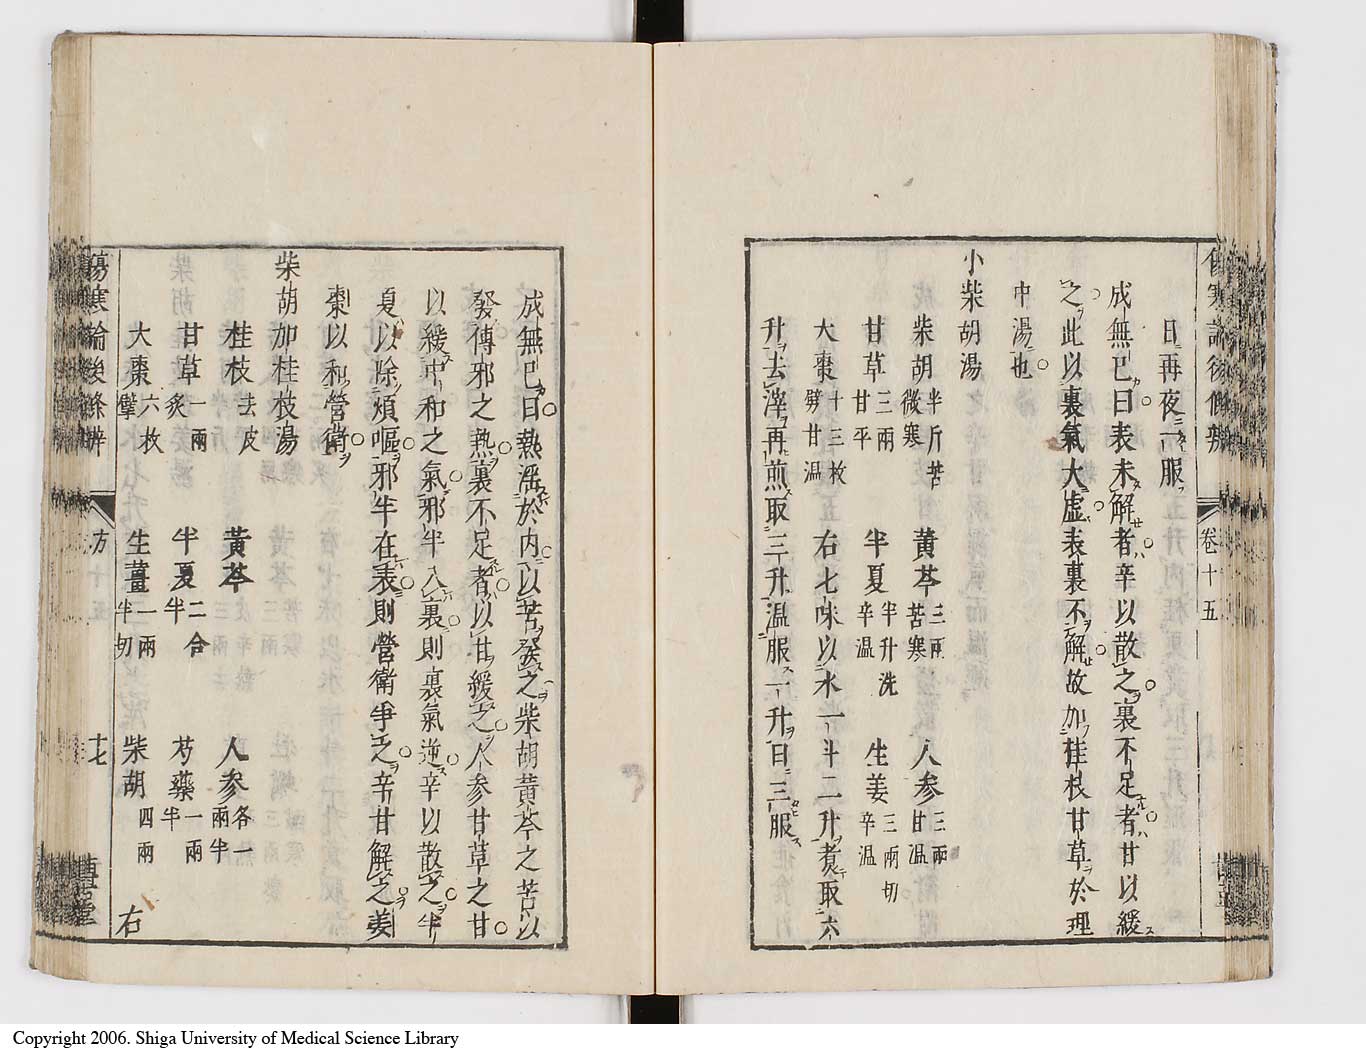 日再夜二服
成無已曰表未解者辛以散之裏不足者甘以緩
之此以裏氣大虛表裏不解故加桂枝甘草於理
中湯也
小柴胡湯
柴胡半斤苦微寒 黃芩三兩苦寒 人參三兩甘溫
甘草三兩甘平 半夏半升洗辛溫 生姜三兩切辛溫
大棗十三枚劈甘溫 右七味以水一斗二升煮取六
升去滓再煎取三升溫服一升日三服
卷十五
成無已曰熱淫於內以苦發之柴胡黃芩之苦以
發傳邪之熱裏不足者以甘緩之人參甘草之甘
以緩中和之氣邪半入裏則裏氣逆辛以散之半
夏以除煩嘔邪半在表則營衛爭之辛甘解之姜
棗以和營衛
柴胡加桂枝湯
桂枝去皮 黃芩 人參各一兩半
甘草一兩炙 半夏二合半 芍藥一兩半
大棗六枚擘 生薑一兩半切 柴胡四兩 右
傷寒論後條辨 方十五 十七 堂
Copyright 2006. Shiga University of Medical Science Library